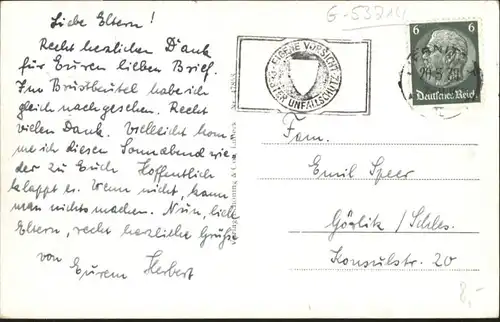 G-53214
Liebe Eltern!
Recht herzlichen Dank
für Euren lieben Brief.
Im Brustbeutel habe ich
gleich nachgesehen. Recht
vielen Dank. Vielleicht kom
me ich diesen Sonnabend wie
der zu Euch. Hoffentlich
klappt es. Wenn nicht, kann
man nichts machen. Nun, liebe
Eltern, recht herzliche Grüße
von
Eurem Herbert
EIGENE VORSICHT
BESTER UNFALLSCHUTZ
6 6
Deutsches Reich
Fam.
Emil Speer
Görlitz / Schles.
Konsulstr. 20
8,-